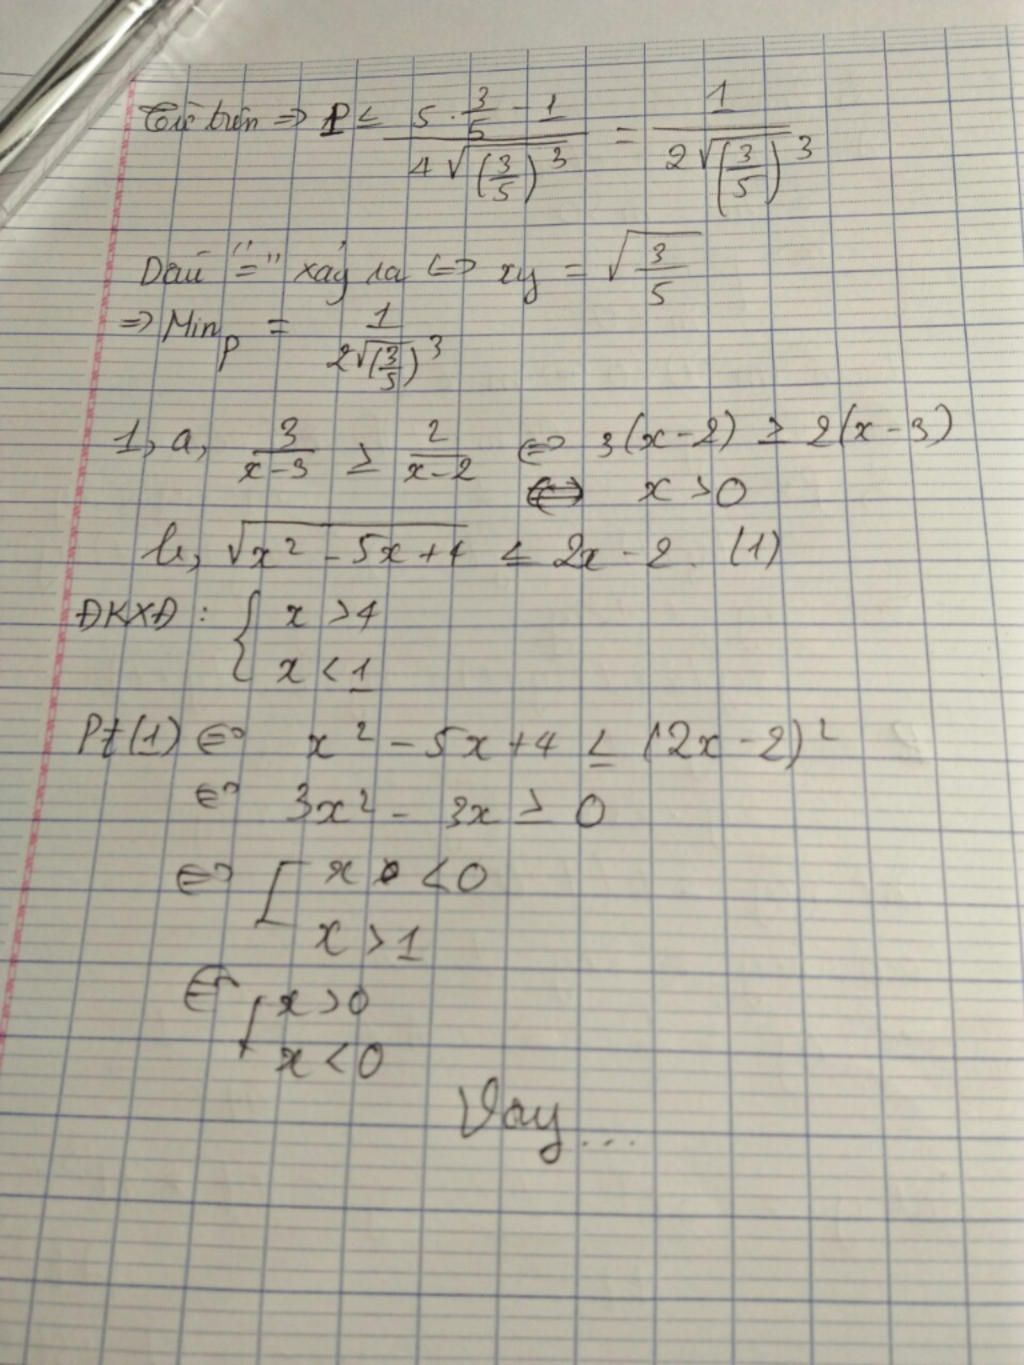 Từ trên => P ≤ (5 · 3/5 - 1)/(4√(3/5)^3) = 1/(2√(3/5)^3)
Dấu "=" xảy ra <=> xy = √(3/5)
=> Min_P = 1/(2√(3/5)^3)
1, a, 3/(x-3) ≥ 2/(x-2) <=> 3(x-2) ≥ 2(x-3)
<=> x > 0
b, √(x² - 5x + 4) ≤ 2x - 2. (1)
ĐKXĐ: { x > 4
x < 1
Pt(1) <=> x² - 5x + 4 ≤ (2x - 2)²
<=> 3x² - 3x ≥ 0
<=> [ x < 0
x > 1
<=> [ x > 0
x < 0
Vậy...